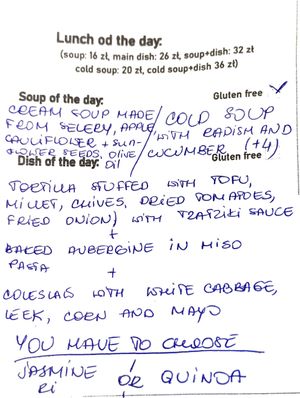 Lunch od the day:
(soup: 16 zł, main dish: 26 zł, soup+dish: 32 zł
cold soup: 20 zł, cold soup+dish 36 zł)
Soup of the day: Gluten free ✓
CREAM SOUP MADE / COLD SOUP
FROM SELERY, APPLE / WITH RADISM AND
CAULIFLOWER + SUN- / CUCUMBER (+4)
FLOWER SEEDS, OLIVE
OIL
Dish of the day: Gluten free
TORTILLA STUFFED WITH TOFU,
MILLET, CHIVES, DRIED TOMATOES,
FRIED ONION) WITH TZATZIKI SAUCE
+
BAKED AUBERGINE IN MISO
PASTA
+
COLESLAW WITH WHITE CABBAGE,
LEEK, CORN AND MAYO
YOU HAVE TO CHOOSE
JASMINE / OR QUINOA
RI